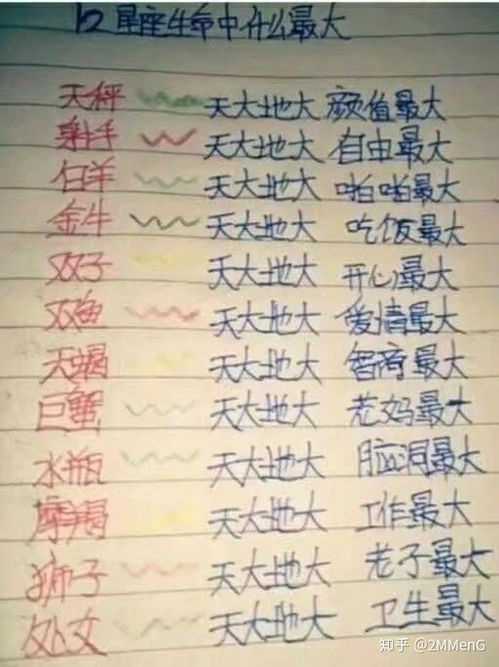 12星座生命中什么最大
天秤 天大地大 颜值最大
射手 天大地大 自由最大
白羊 天大地大 啪啪最大
金牛 天大地大 吃饭最大
双子 天大地大 开心最大
双鱼 天大地大 爱情最大
天蝎 天大地大 智商最大
巨蟹 天大地大 老妈最大
水瓶 天大地大 脑洞最大
摩羯 天大地大 工作最大
狮子 天大地大 老子最大
处女 天大地大 卫生最大
知乎 @2MMenG